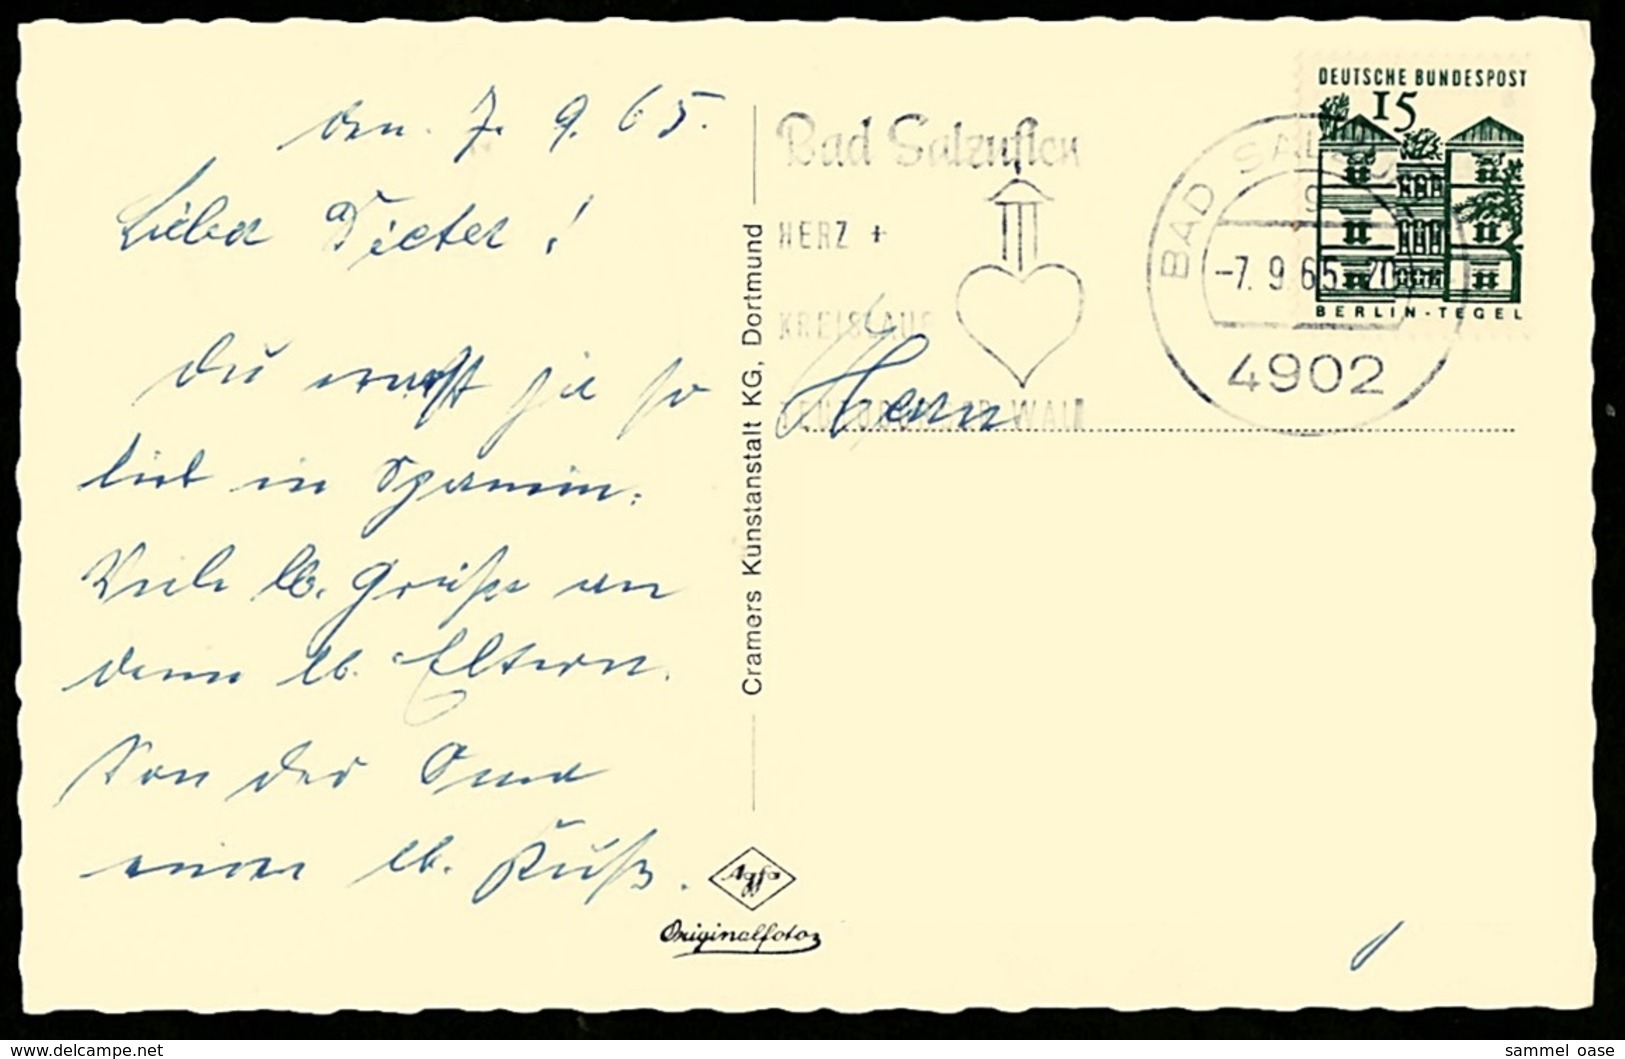 den. 7. 9. 65.
Lieber Dieter!
Du warst ja so
lieb in Spanien.
Viele lb. Grüße an
deine lb. Eltern.
Von der Oma
einen lb. Kuß.
Cramers Kunstanstalt KG, Dortmund
Agfa
Originalfoto
Bad Salzuflen
HERZ +
KREISLAUF
TEUTOBURGER WALD
Herrn
BAD SALZUFLEN
g
-7.9.65.-20
4902
DEUTSCHE BUNDESPOST
15
BERLIN-TEGEL
www.delcampe.net
sammel_oase